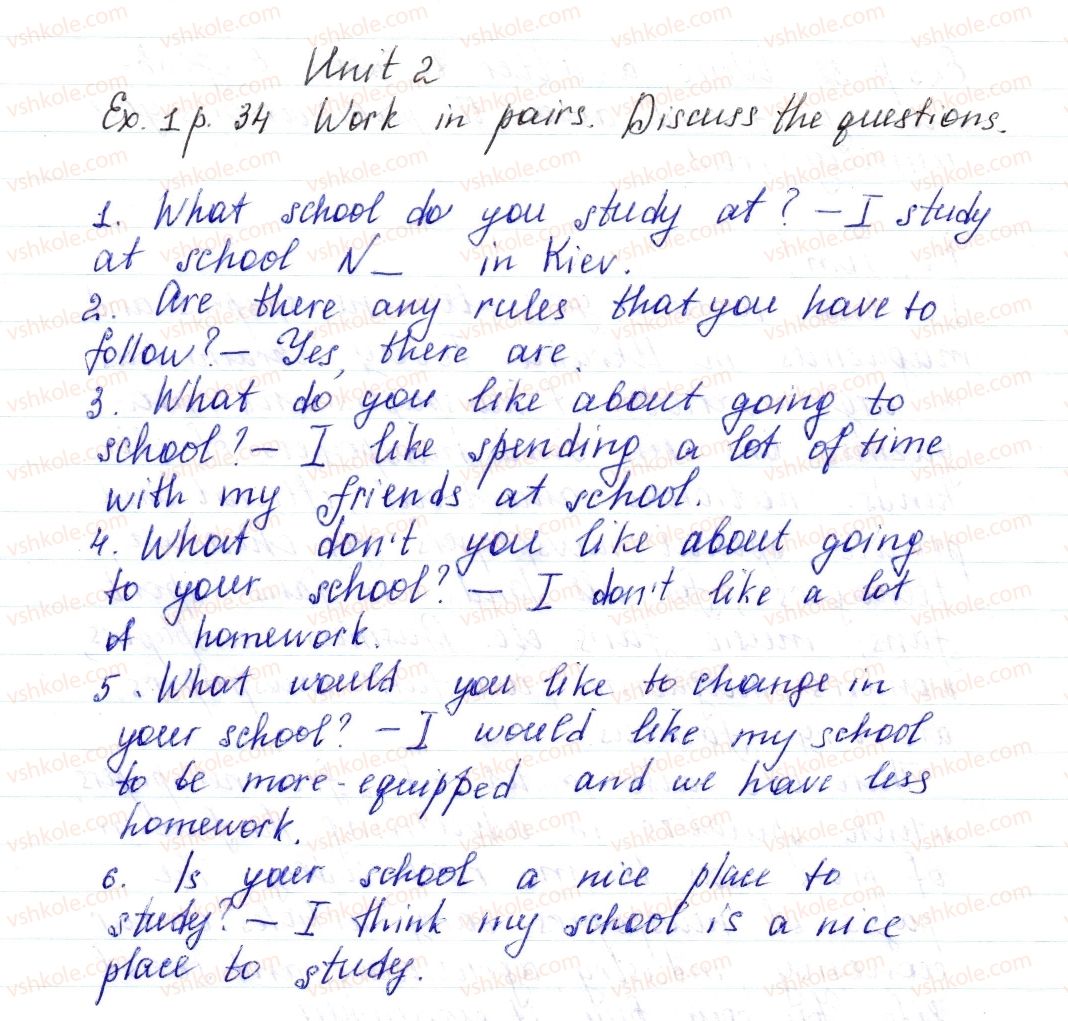 Unit 2
Ex. 1 p. 34 Work in pairs. Discuss the questions.
1. What school do you study at? – I study
at school N_ in Kiev.
2. Are there any rules that you have to
follow? – Yes, there are.
3. What do you like about going to
school? – I like spending a lot of time
with my friends at school.
4. What don't you like about going
to your school? – I don't like a lot
of homework.
5. What would you like to change in
your school? – I would like my school
to be more-equipped and we have less
homework.
6. Is your school a nice place to
study? – I think my school is a nice
place to study.